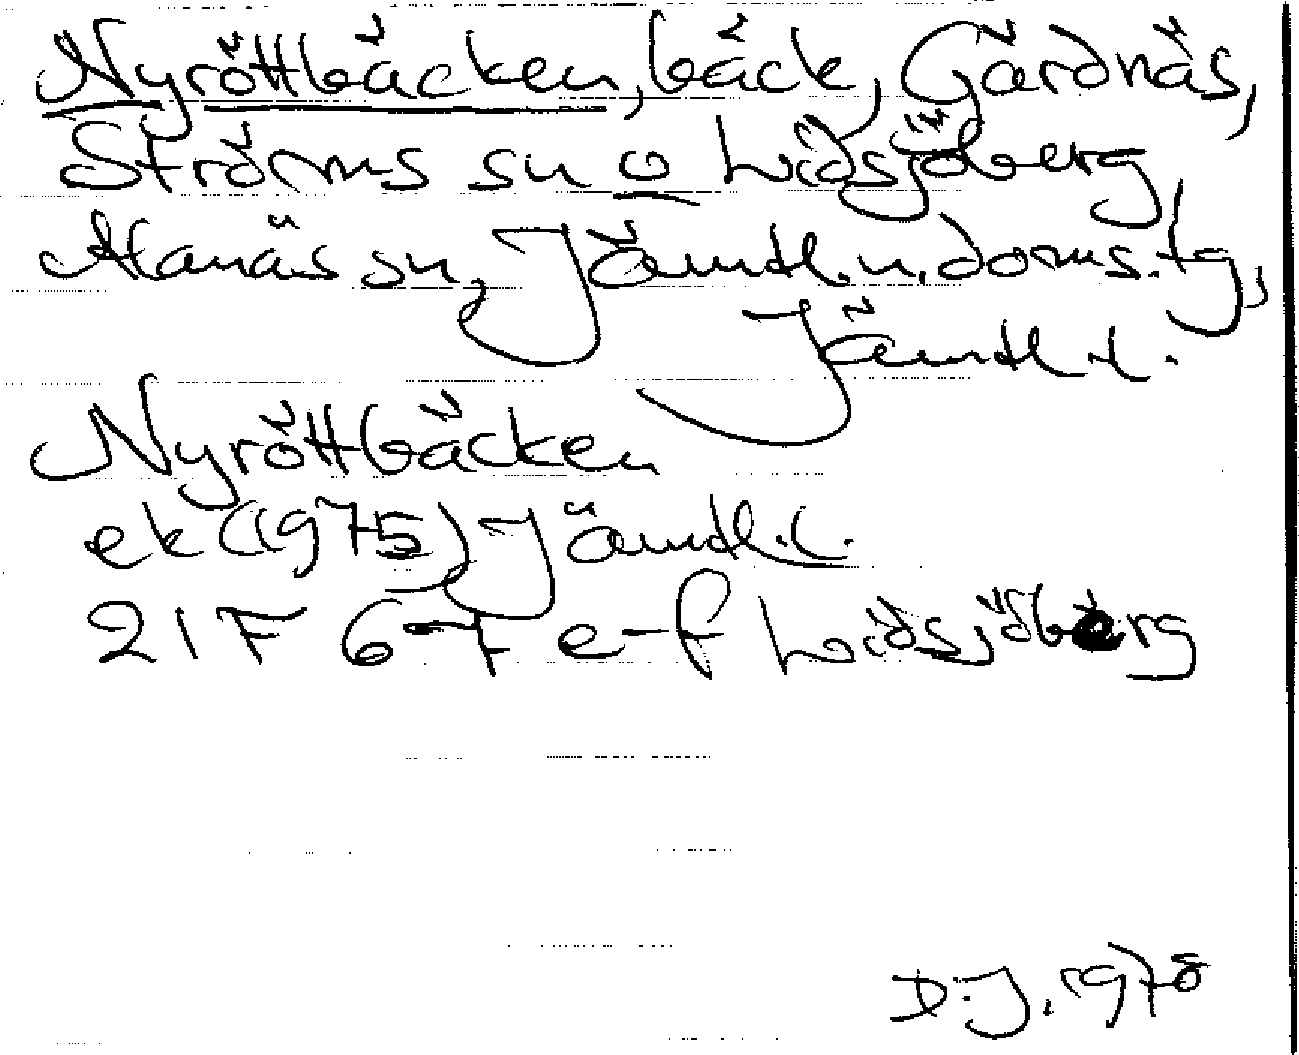 Nyröttbäcken, bäck, Gärdnäs,
Ströms sn o Lidsjöberg
Alanäs sn, Jämtl. n. doms. tg,
Jämtl. l.
Nyröttbäcken
ek (1975) Jämtl. l.
21F 6-7 e-f Lidsjöberg
D.J. 1978